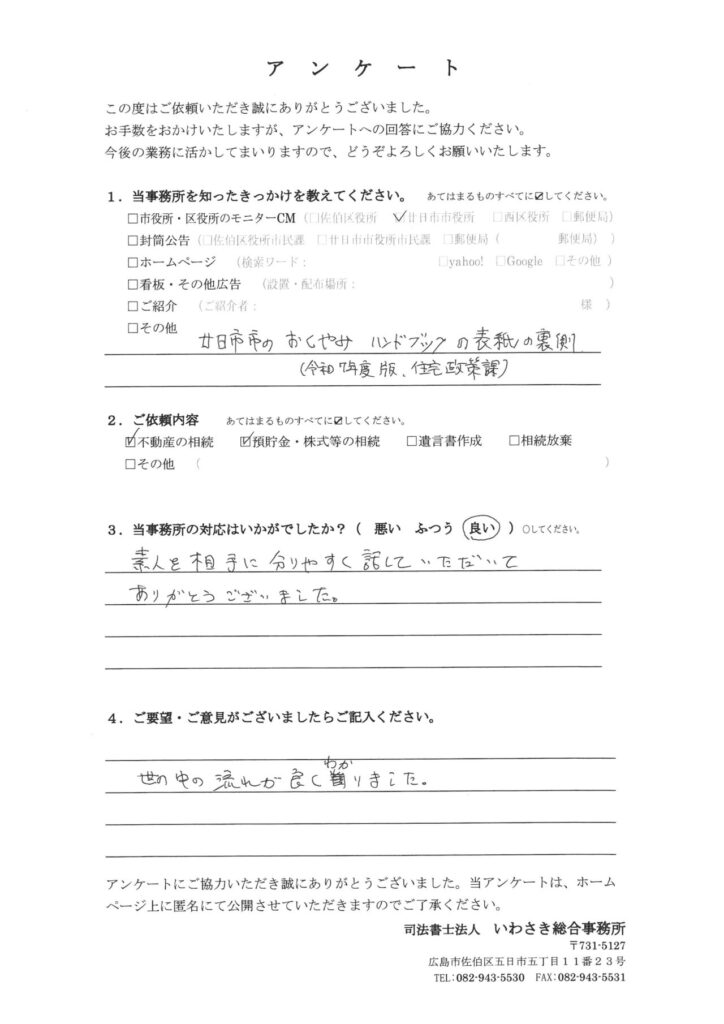 アンケート
この度はご依頼いただき誠にありがとうございました。
お手数をおかけいたしますが、アンケートへの回答にご協力ください。
今後の業務に活かしてまいりますので、どうぞよろしくお願いいたします。
1．当事務所を知ったきっかけを教えてください。 あてはまるものすべてに☑してください。
□市役所・区役所のモニターCM（□佐伯区役所 ☑廿日市市役所 □西区役所 □郵便局）
□封筒公告（□佐伯区役所市民課 □廿日市市役所市民課 □郵便局（ 郵便局））
□ホームページ （検索ワード： □yahoo! □Google □その他）
□看板・その他広告 （設置・配布場所： ）
□ご紹介 （ご紹介者： 様 ）
□その他
廿日市市の おくやみ ハンドブックの表紙の裏側
（令和7年度版、住宅政策課）
2．ご依頼内容 あてはまるものすべてに☑してください。
☑不動産の相続 ☑預貯金・株式等の相続 □遺言書作成 □相続放棄
□その他 （ ）
3．当事務所の対応はいかがでしたか？（ 悪い ふつう 良い ）○してください。
素人を相手に分りやすく話していただいて
ありがとうございました。
4．ご要望・ご意見がございましたらご記入ください。
わか
世の中の流れが良く りました。
アンケートにご協力いただき誠にありがとうございました。当アンケートは、ホーム
ページ上に匿名にて公開させていただきますのでご了承ください。
司法書士法人 いわさき総合事務所
〒731-5127
広島市佐伯区五日市五丁目１１番２３号
TEL:082-943-5530 FAX:082-943-5531